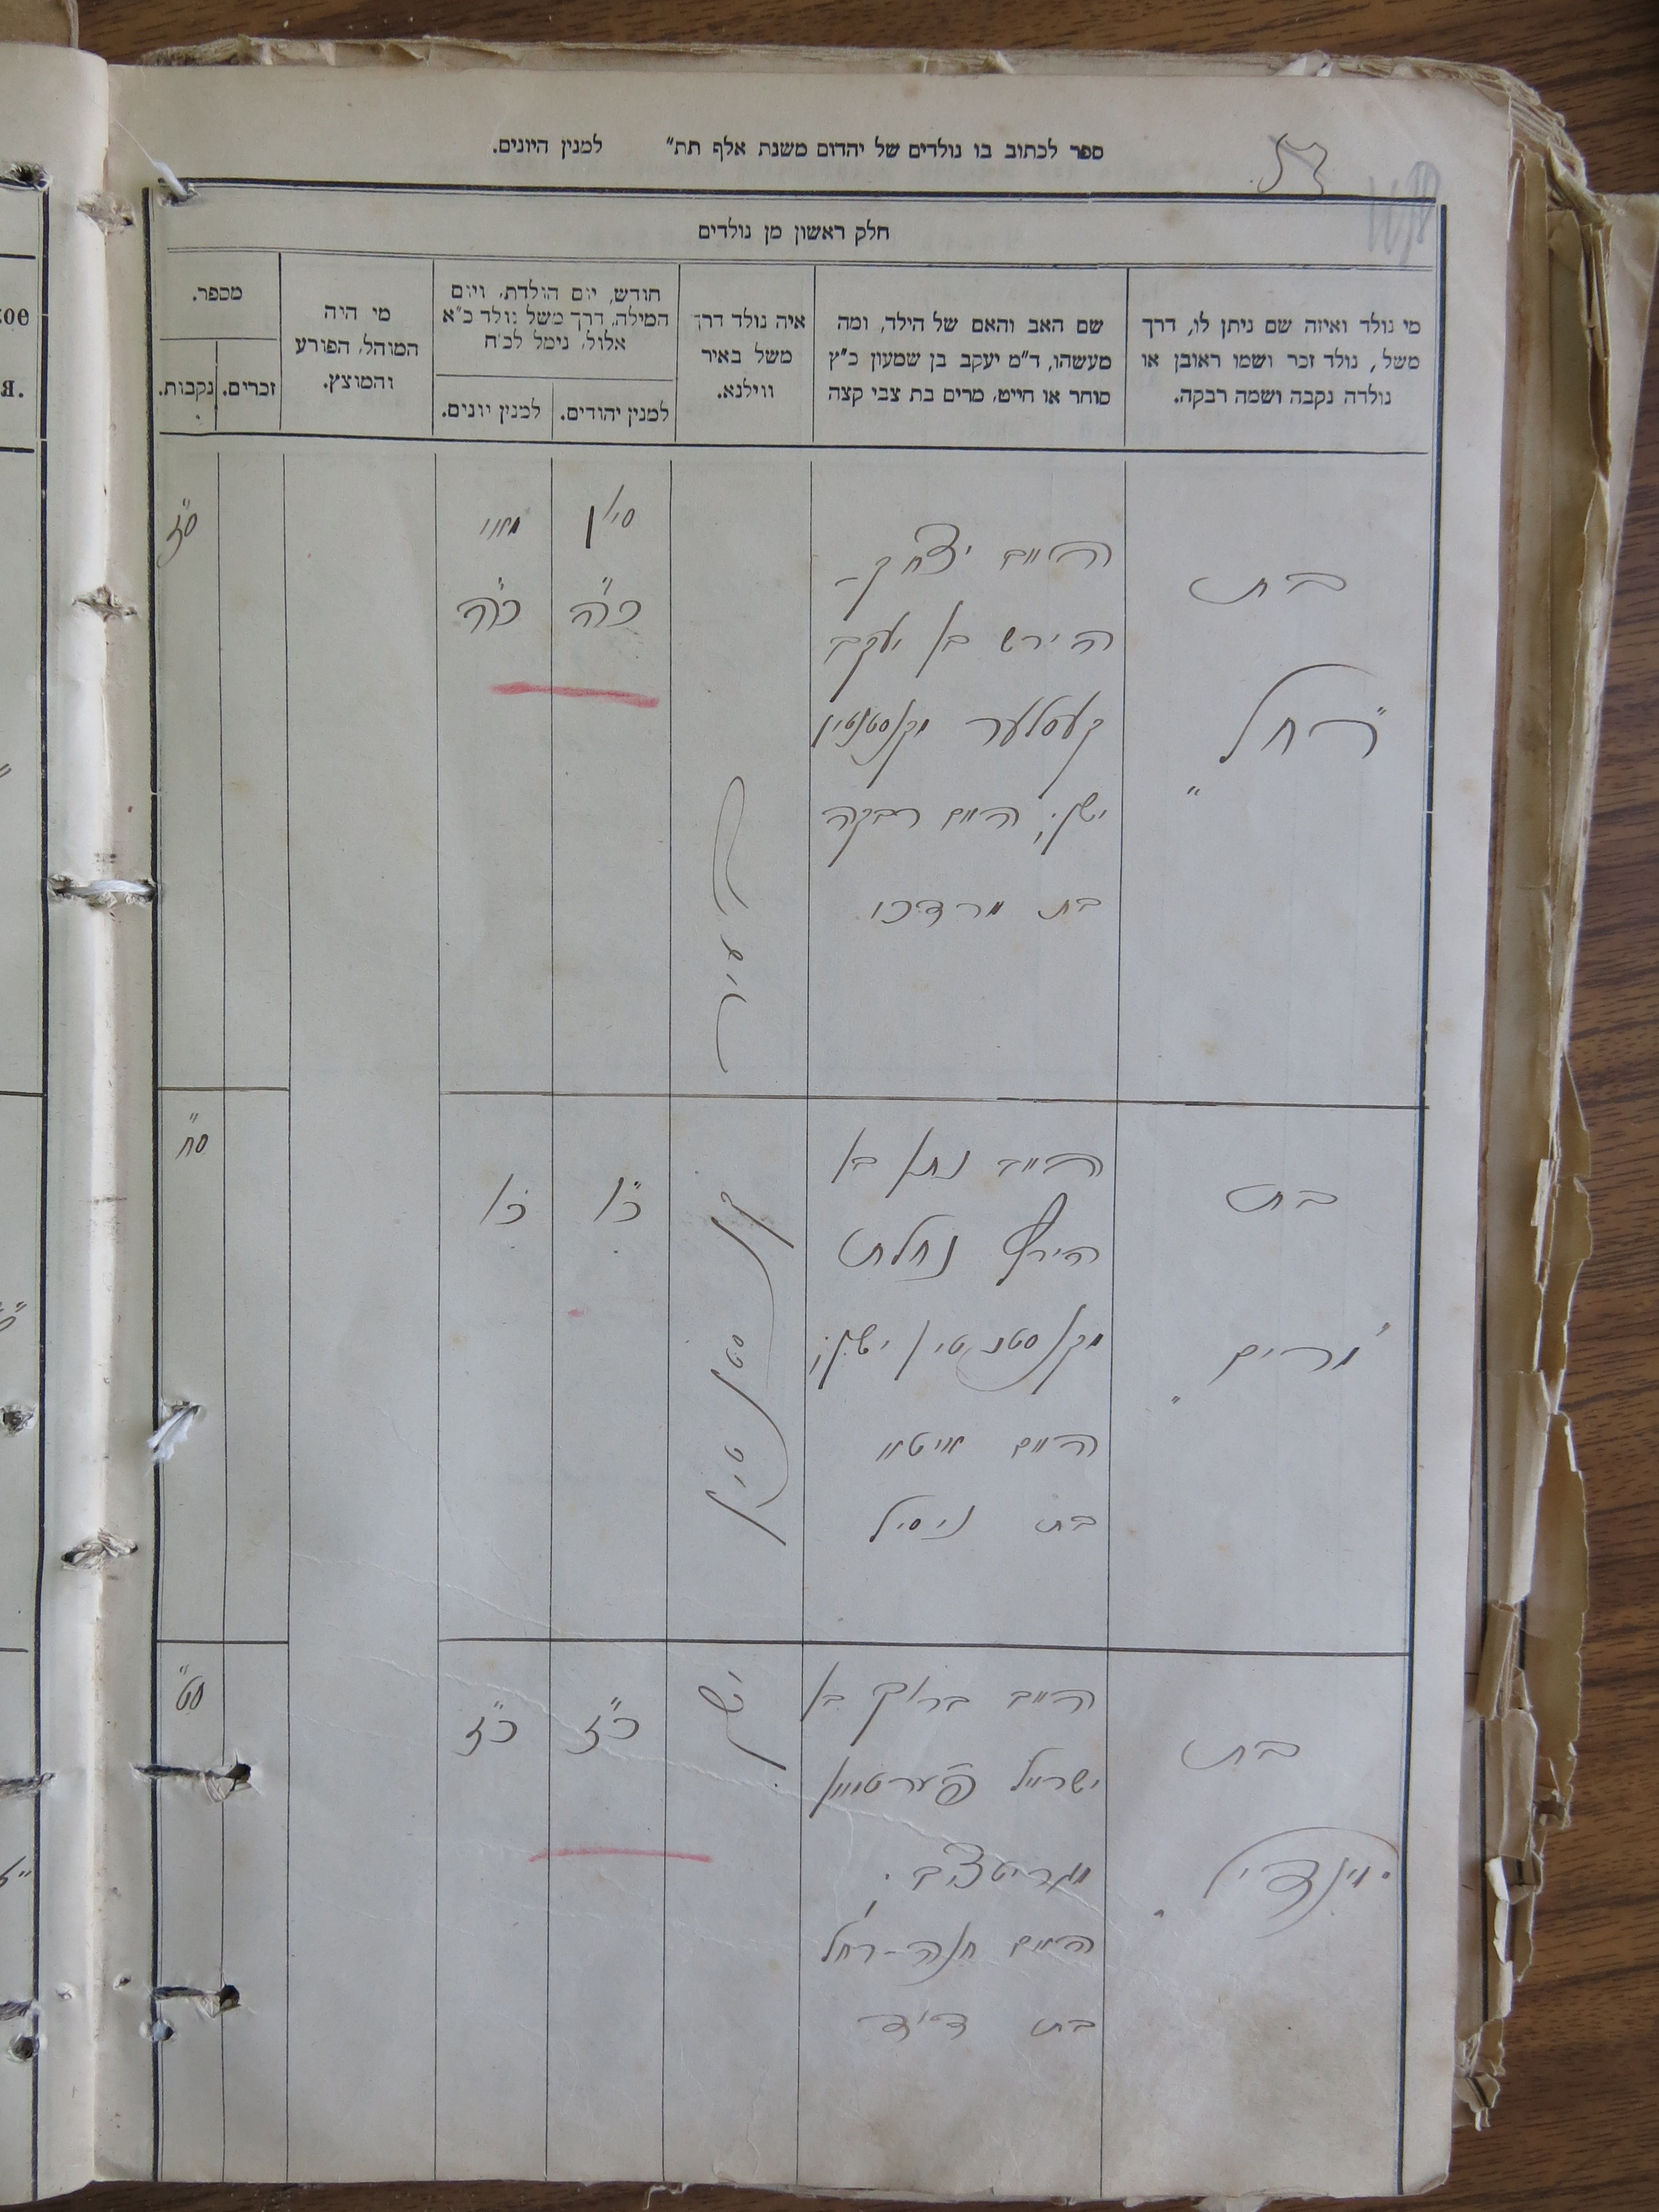 ספר לכתוב בו נולדים של יהדום משנת אלף תת״ למנין היונים.
חלק ראשון מן נולדים
מי נולד ואיזה שם ניתן לו, דרך
משל, נולד זכר ושמו ראובן או
נולדה נקבה ושמה רבקה.
שם האב והאם של הילד, ומה
מעשהו, ד״מ יעקב בן שמעון כ״ץ
סוחר או חייט, מרים בת צבי קצה
איה נולד דרך
משל באיר
ווילנא.
חודש, יום הולדת, ויום
המילה, דרך משל נולד כ״א
אלול, נימל לכ״ח
למנין יהודים.
למנין יונים.
מי היה
המוהל, הפורע
והמוצץ.
מספר.
זכרים.
נקבות.
בת
"רחל"
האב יצחק-
הירש בן יעקב
קעסלער מקנסטנטין
ישן; האם רבקה
בת מרדכי
סיון
כ״ה
מאי
כ״ה
ס״ז
בת
"מרים"
האב נתן בן
הירש נחלת
מקנסטנטין ישן;
האם איטא
בת ניסיל
קנסטנטין
כ״ו
כ״ו
ס״ח
בת
האב ברוך בן
ישראל
האם חנה-רחל
בת דוד
ישן
כ״ז
כ״ז
ס״ט